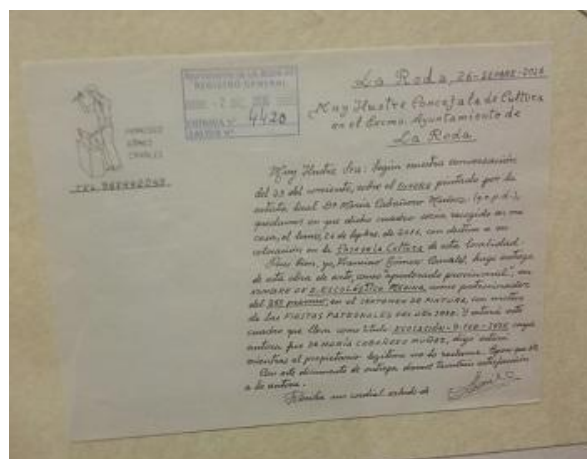 La Roda, 26-
REGISTRO GENERAL
4420
Muy Ilustre Concejala de Cultura
en el Excmo. Ayuntamiento de
La Roda.
FRANCISCO
GÓMEZ
CANALES
Muy Ilustre Sra: Según nuestra conversación
del 23 del corriente, sobre el pintado por la
artista local Dª María Cabañero Muñoz (q.e.p.d.),
quedamos en que dicho cuadro sería recogido en mi
casa, el lunes, 26 de con destino a su
colocación en la Casa de la Cultura de esta localidad.
Pues bien, yo, Francisco Gómez Canales, hago entrega
de esta obra de arte, como "apoderado provisional", en
NOMBRE DE D. ESCOLÁSTICO MEDINA, como patrocinador
del premio, en el CERTAMEN DE PINTURA, con motivo
de las FIESTAS PATRONALES DEL AÑO Y estará este
cuadro que lleva como título cuya
autora fue Dª MARÍA CABAÑERO MUÑOZ, digo estará
mientras el propietario legítimo no lo reclame.
Con este documento de entrega, damos satisfacción
a la autora.
Reciba un cordial saludo de